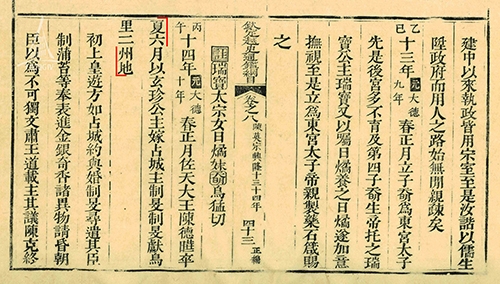 建中以來執政皆用宗室至是汝諧以儒生
陞政府而用人之路始無閒親疎矣
乙巳十三年元大德九年春正月立子奣爲東宮太子
先是後宮多不育及第四子奣生帝托之瑞
寶公主瑞寶又以屬日燏養之日燏遂加意
撫視至是立爲東宮太子帝親製藥石箴賜
之
欽定越史通鑑綱目 卷之八 陳英宗興隆十三十四年 四十三 正編
註瑞寶太宗女日燏妹奣烏猛切
丙午十四年元大德十年春正月佐天大王陳德曅卒
夏六月以玄珍公主嫁占城主制旻制旻獻烏
里二州地
初上皇遊方如占城約與婚制旻尋遣其臣
制蒲苔等奉表進金銀奇香諸異物請昏朝
臣以爲不可獨文肅王道載主其議陳克終